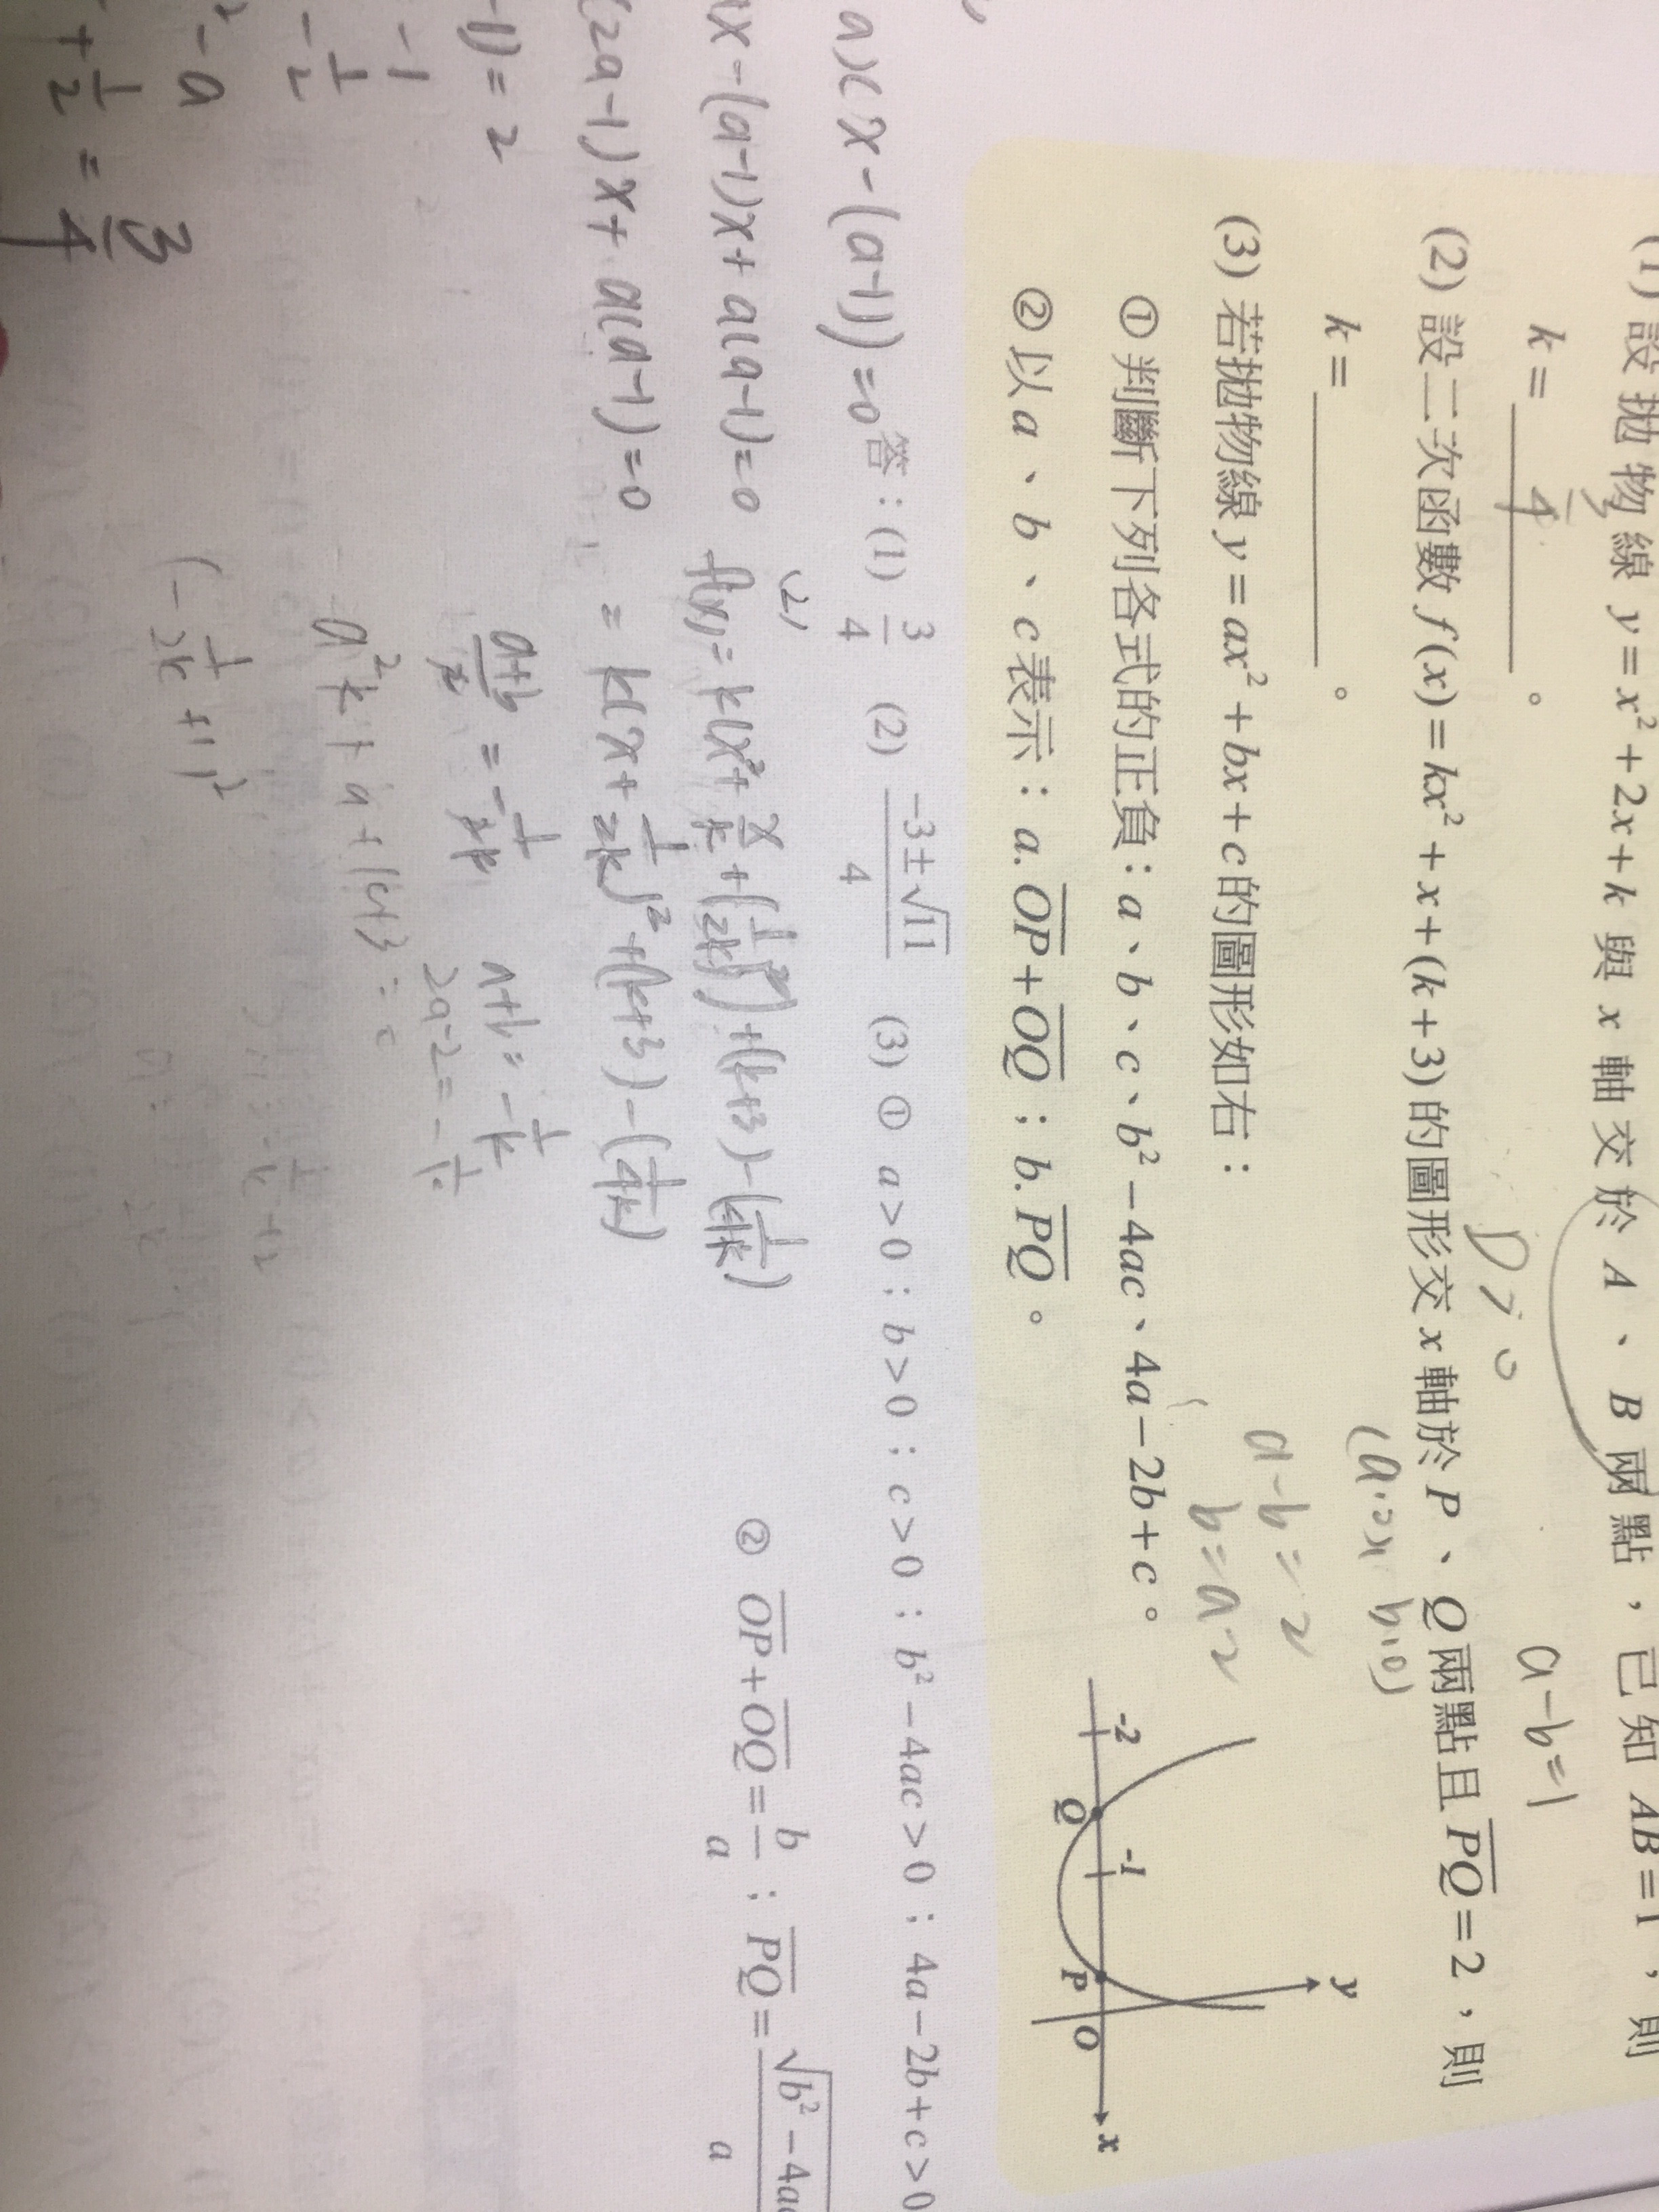 (1) 設拋物線 y = x² + 2x + k 與 x 軸交於 A、B 兩點，已知 AB = 1，則
k = 。
a-b=1
D>0
(2) 設二次函數 f(x) = kx² + x + (k+3) 的圖形交 x 軸於 P、Q 兩點且 PQ = 2，則
k = 。
(a,0) (b,0)
a-b=2
b=a-2
(3) 若拋物線 y = ax² + bx + c 的圖形如右：
① 判斷下列各式的正負：a、b、c、b² − 4ac、4a − 2b + c。
② 以 a、b、c 表示：a. OP + OQ；b. PQ。
y
-2
-1
Q
P
O
x
a)(x-(a-1))=0
答：(1) 3/4 (2) (−3±√11)/4 (3) ① a > 0；b > 0；c > 0；b² − 4ac > 0；4a − 2b + c > 0
② OP + OQ = b/a；PQ = √b² − 4ac / a
x-(a-1)x+a(a-1)=0
(2a-1)x+a(a-1)=0
-1)=2
-1
-1/2
²-a
+1/2=3/4
(2)
f(x)=k(x²+x/k+(1/2k)²)+(k+3)-(1/4k)
=k(x+1/2k)²+(k+3)-(1/4k)
a+b/2=-1/2k
a+b=-1/k
2a-2=-1/k
a²k+a+k+3=0
(-1/2k+1)²